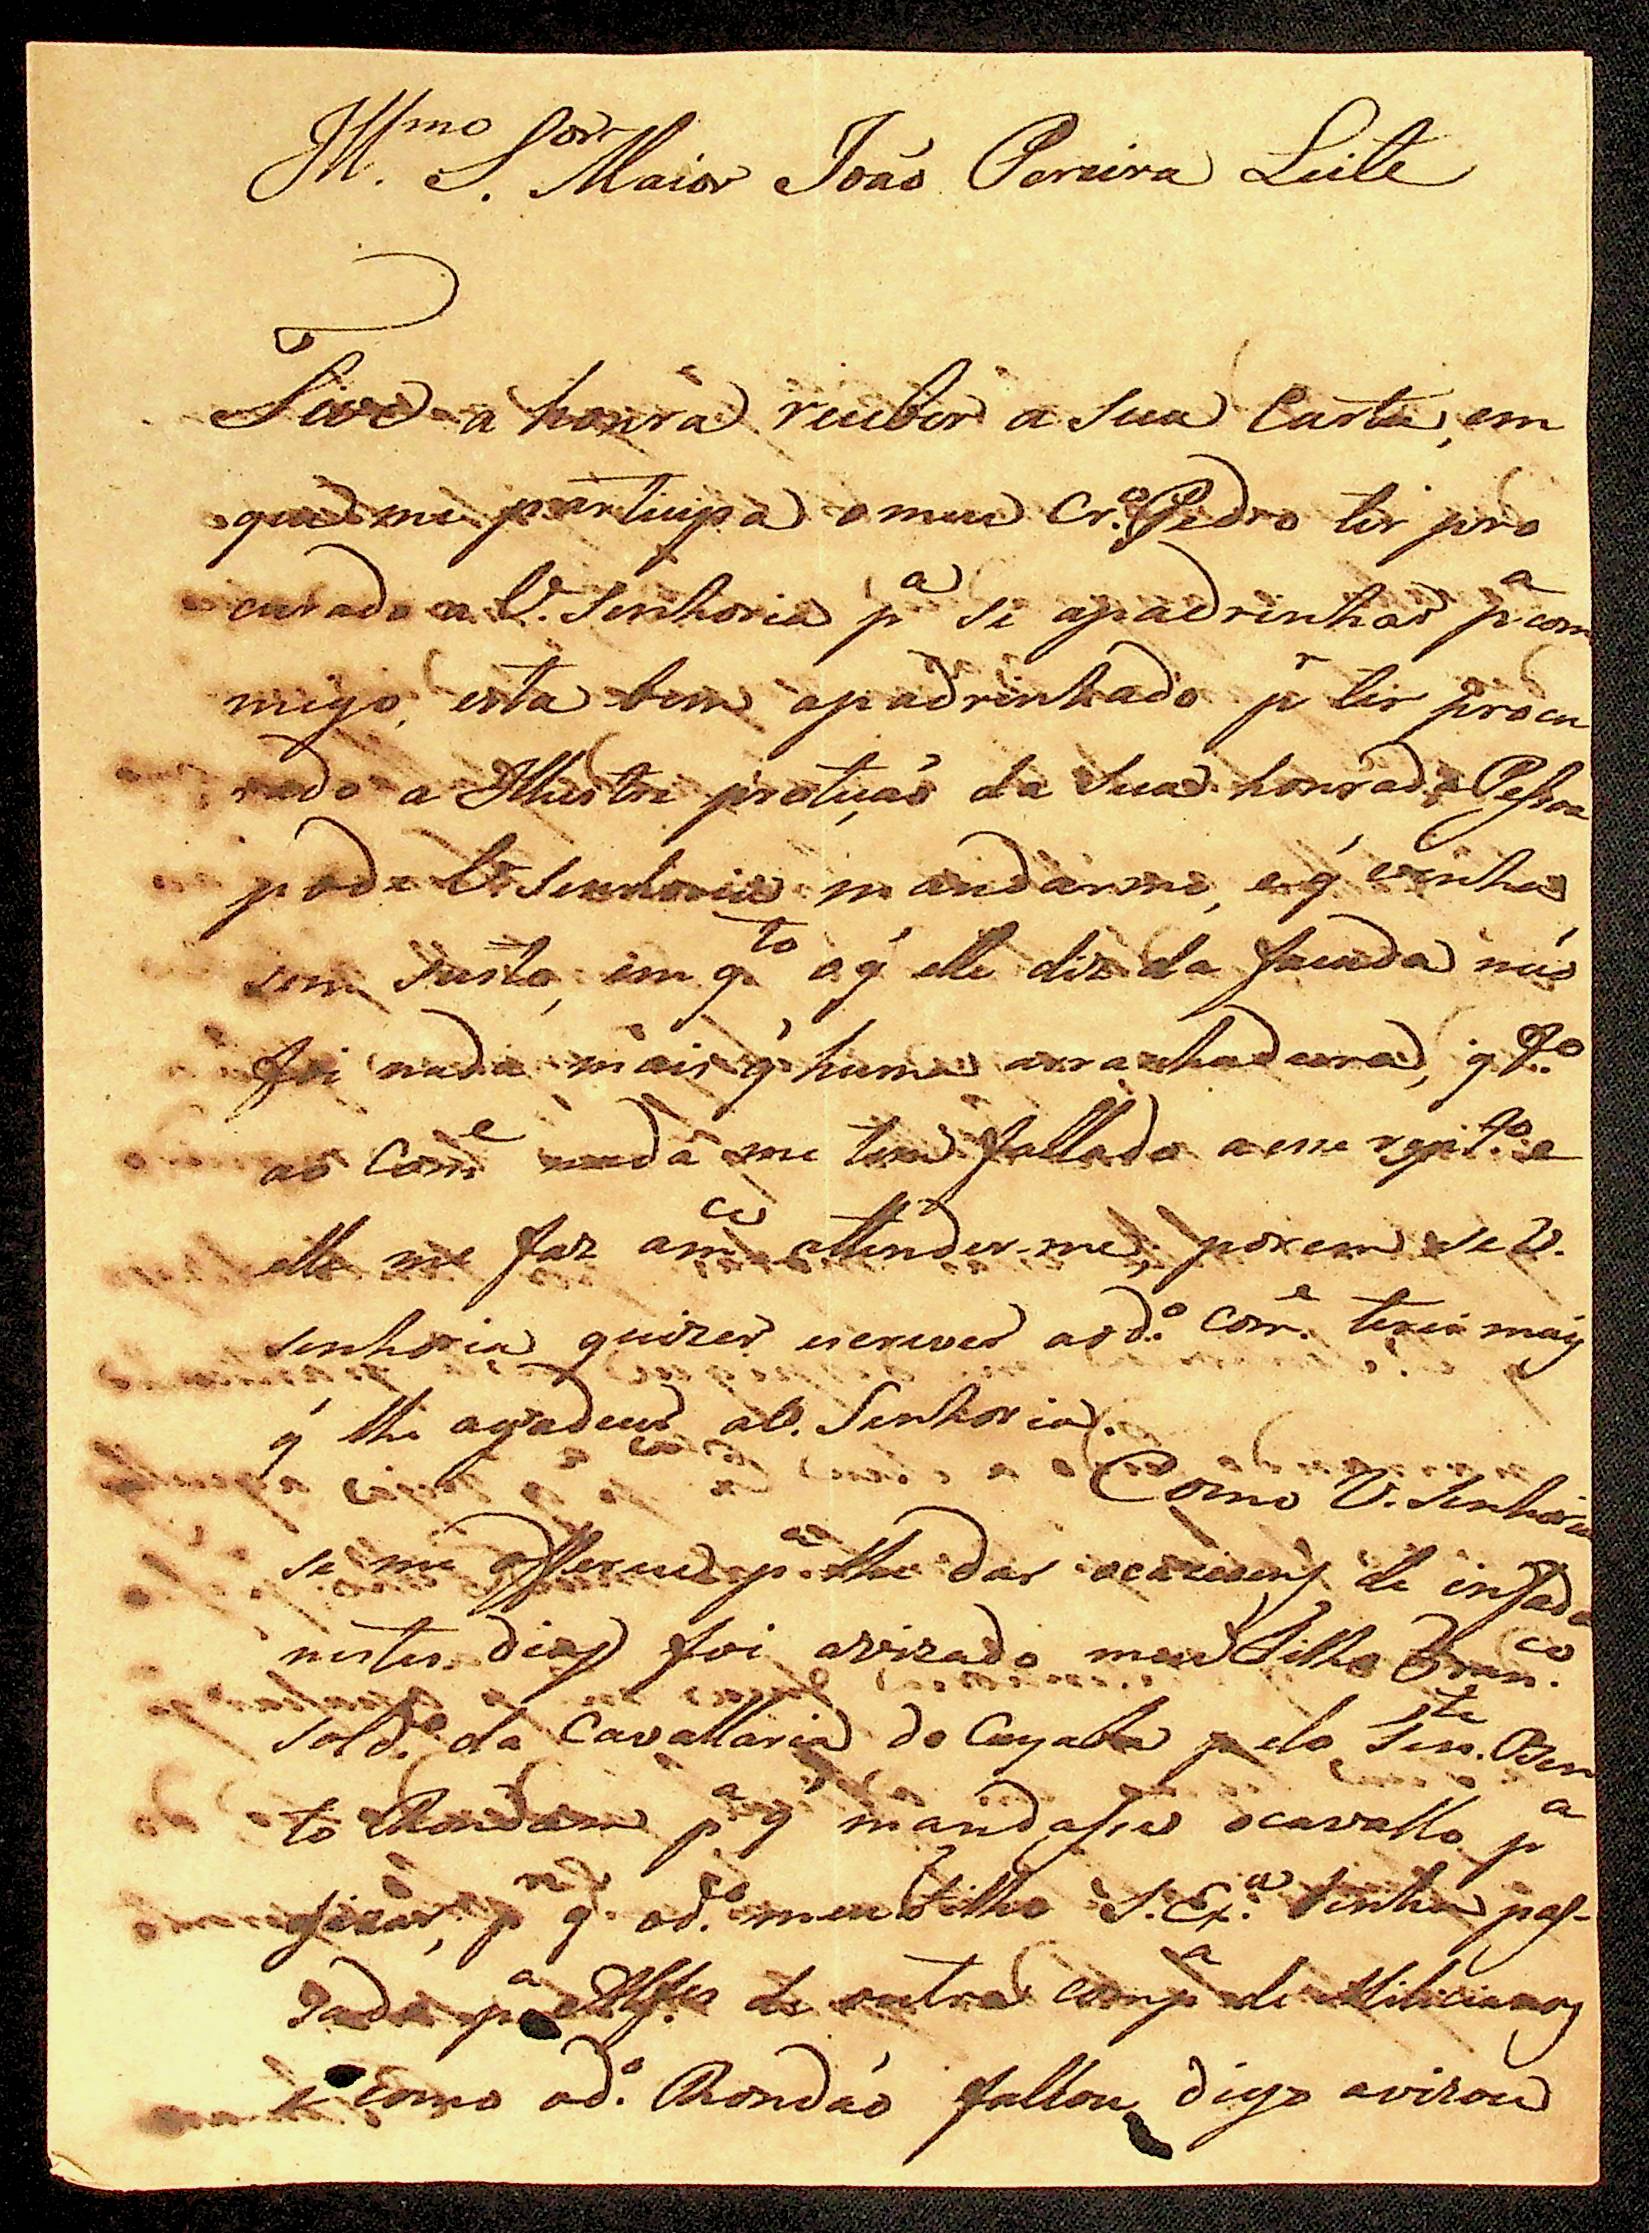 Ill.mo S.or Maior João Pereira Leite
Tive a honra reciber a sua Carta, em
que me participa o meu Cr.o Pedro ter pro
curado a V. Senhoria p.a se apadrinhar p.a com
migo, esta bem apadrinhado p.r ter procu
rado a Illustre proteção da sua honrada Pessoa
pode V. Senhoria mandarme, e q' venha
sem susto, em q.to o q' elle diz da facada não
foi nada mais q' huma arranhadura, q.to
ao Com.e nada me tem fallado a esse resp.to e
elle me faz a m.ce attender-me; porem se V.
senhoria quizer escrever ao d.o Com.e terei mais
q' lhe agradecer a V. Senhoria.
Como V. Senhoria
se me offerece p.a lhe dar ocazioens de infado
nestes dias foi avizado meu Filho Fran.co
Sold.o da Cavallaria do Cuyaba pelo Ten.te Ben
to Rondam p.a q' mandasse o cavallo p.a
p.r q' o d.o meu Filho S. Ex.a tinha pas-
sado p.a Alf.es de outra comp.a de Milicianos
e como o d.o Rondão fallou digo avizou